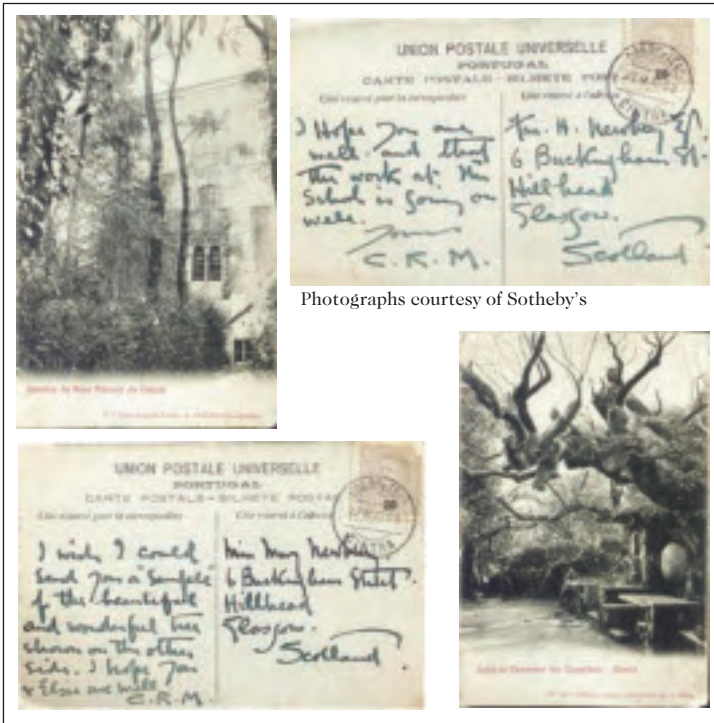 UNION POSTALE UNIVERSELLE
PORTUGAL
CARTE POSTALE - BILHETE POSTAL
Côté réservé pour la correspondance
Côté réservé à l'adresse
I Hope you are
well. and that
the work at the
School is going on
well.
Yours
C. R. M.
Fra. H. Newbery Esq.
6 Buckingham St.
Hillhead
Glasgow.
Scotland
Photographs courtesy of Sotheby's
UNION POSTALE UNIVERSELLE
PORTUGAL
CARTE POSTALE - BILHETE POSTAL
CINTRA
I wish I could
send you a "sample"
of the beautiful
and wonderful tree
shown on the other
side. I hope you
& Elsie are well
C. R. M.
Miss Mary Newbery
6 Buckingham Street.
Hillhead
Glasgow.
Scotland